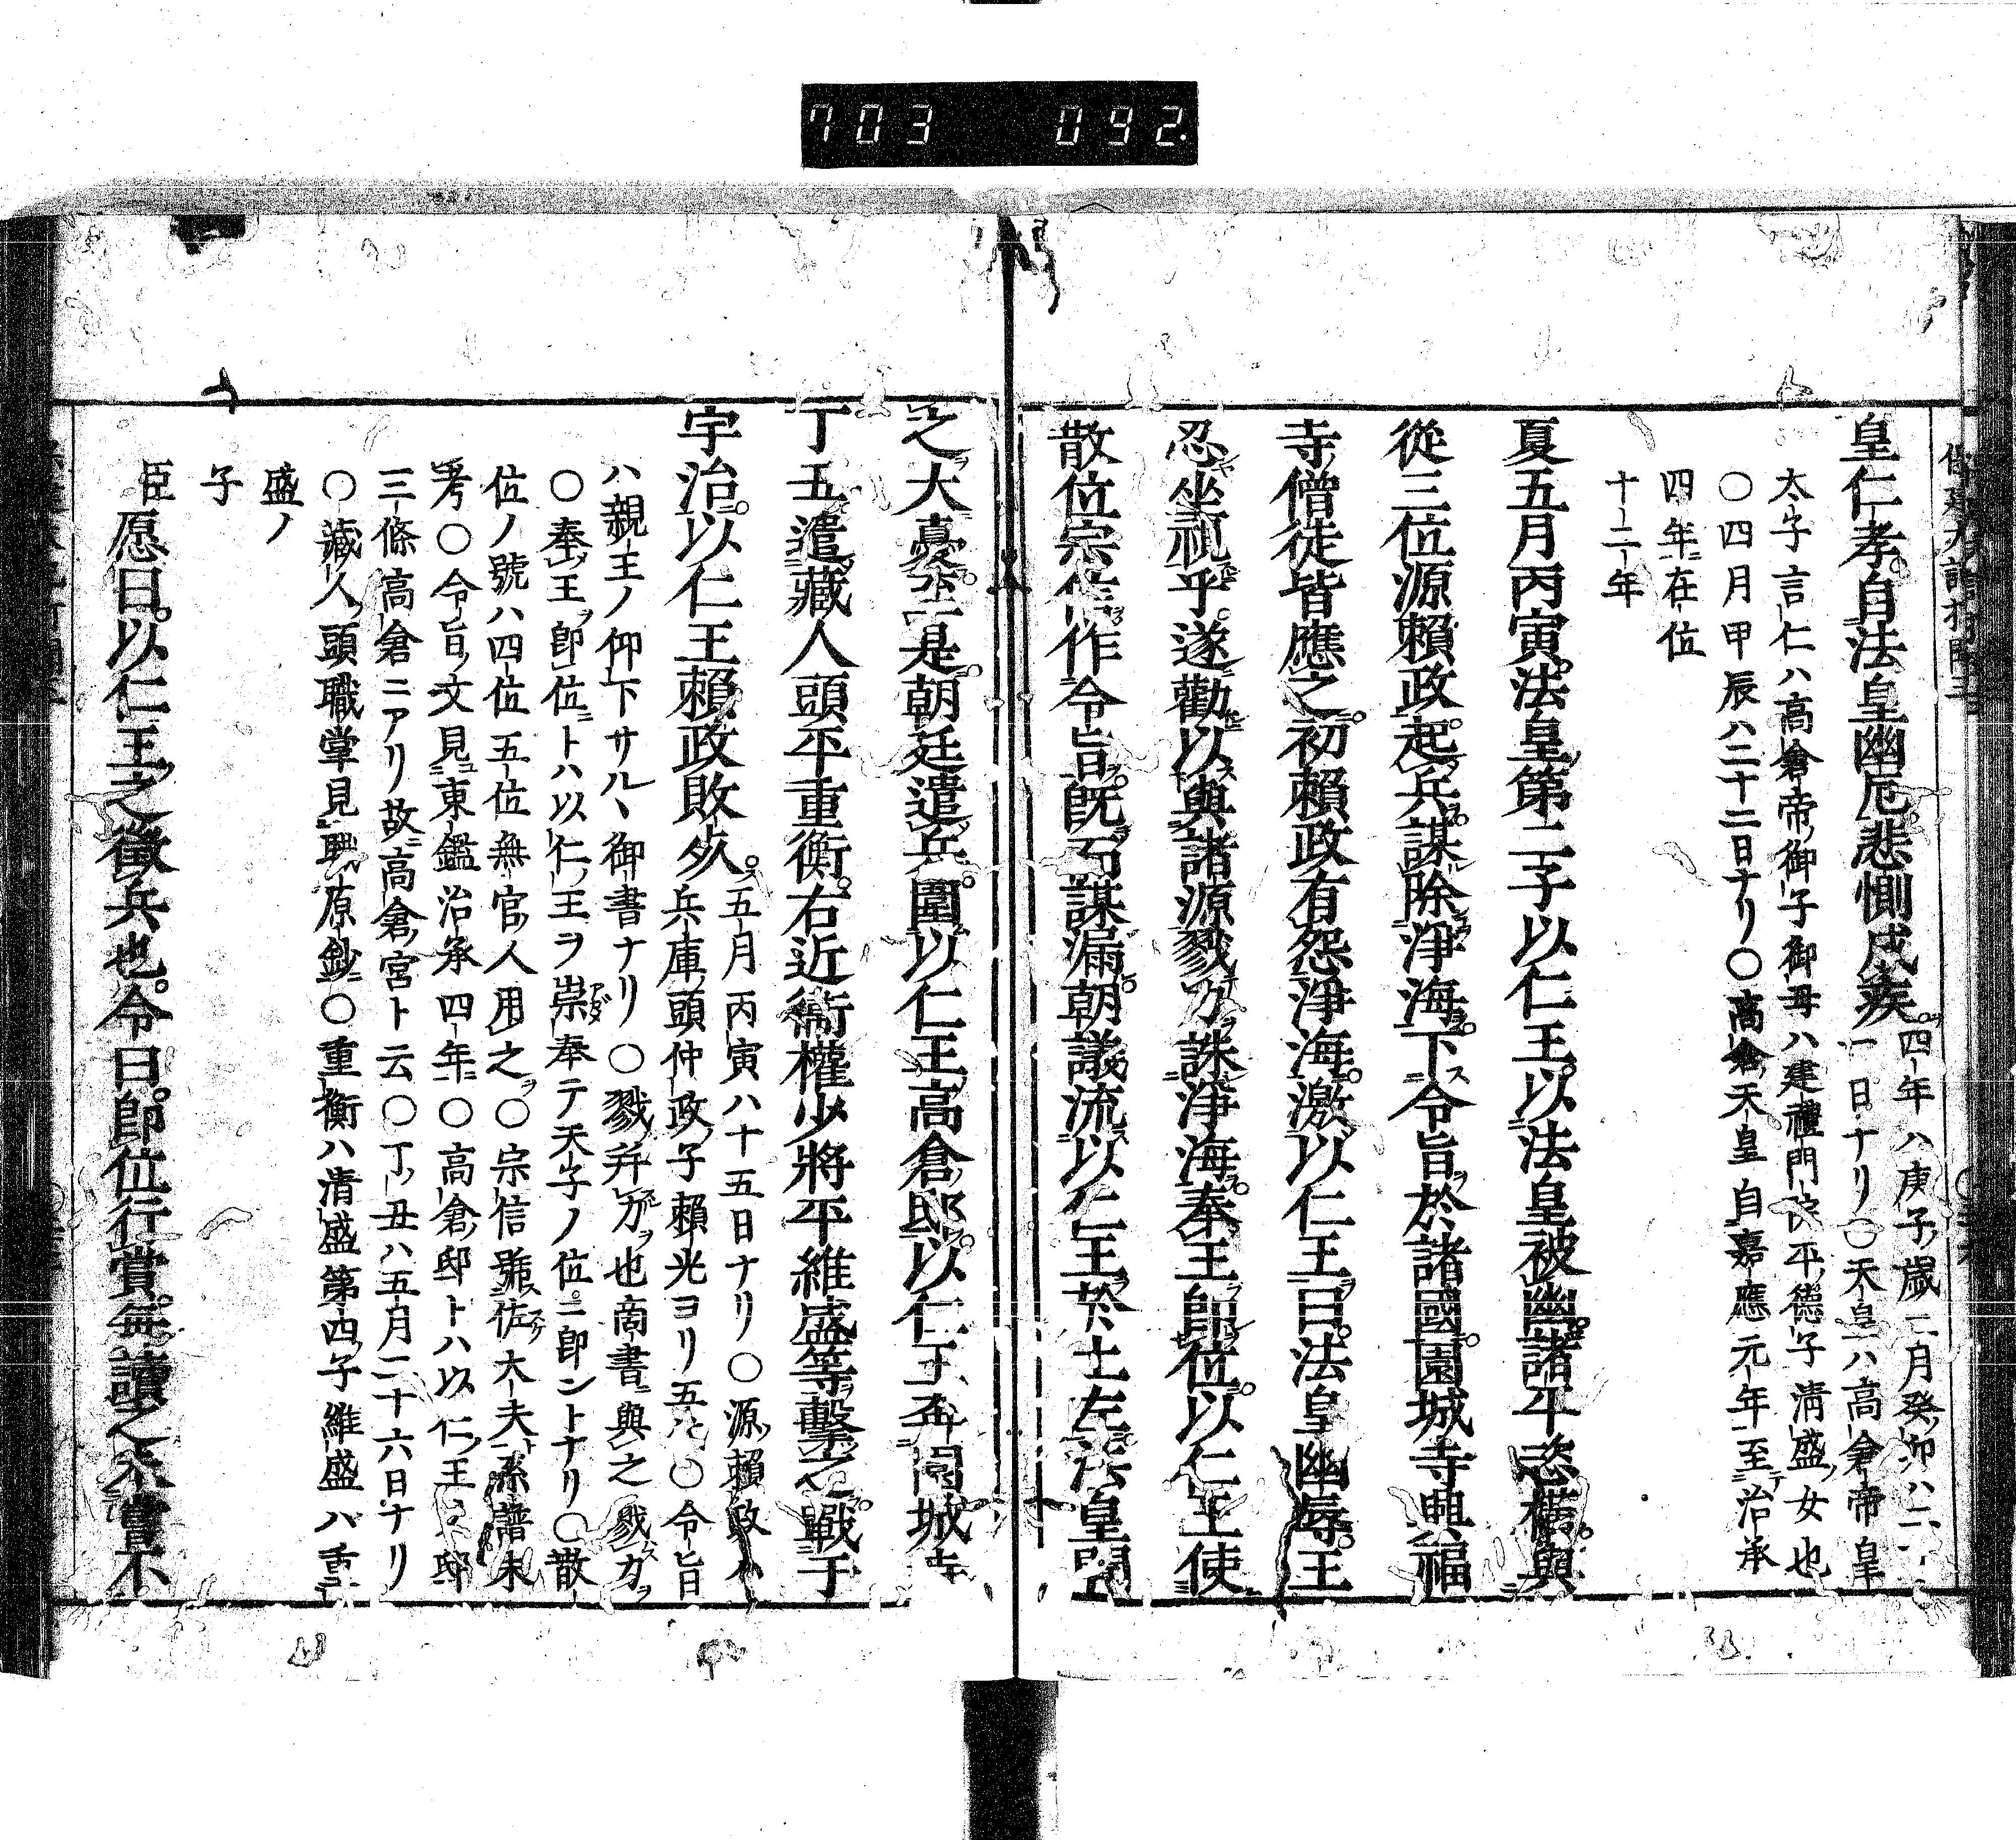 703 092
皇仁孝。自法皇幽厄。悲惻成疾。
四年ハ庚子ノ歳二月癸卯ハ二
一日ナリ〇天皇ハ高倉帝皇
太子言仁ハ高倉帝ノ御子御母ハ建禮門院平ノ德子清盛ノ女也
〇四月甲辰ハ二十二日ナリ〇高倉天皇自嘉應元年至治承
四年在位
十二年
夏五月丙寅。法皇第二子以仁王。以法皇被幽。諸平恣橫。與
從三位源賴政。起兵。謀除淨海。下令旨於諸國。園城寺興福
寺僧徒皆應之。初賴政有怨淨海。激以仁王曰。法皇幽辱。王
忍坐視乎。遂勸以與諸源戮力誅淨海。奉王即位。以仁王使
散位宗信作令旨。既而謀漏。朝議流以仁王於土左。法皇聞
之大憂。至是朝廷遣兵。圍以仁王高倉邸。以仁王奔園城寺
丁丑。遣藏人頭平重衡。右近衞權少將平維盛等擊之。戰于
宇治。以仁王賴政敗歿。
五月丙寅ハ十五日ナリ〇源ノ賴政ハ
兵庫ノ頭仲政ノ子賴光ヨリ五〇令旨
ハ親王ノ仰下サルヽ御書ナリ〇戮ハ并力也商書與之戮力
〇奉王即位トハ以仁王ヲ崇奉テ天子ノ位ニ即ントナリ〇散
位ノ號ハ四位五位無官ノ人用之〇宗信號佐大夫系譜未
考〇令旨ノ文見東鑑治承四年〇高倉ノ邸トハ以仁王ノ邸
三條高倉ニアリ故ニ高倉ノ宮ト云〇丁丑ハ五月二十六日ナリ
〇藏人ノ頭職掌見職原鈔〇重衡ハ清盛第四ノ子維盛ハ重
盛ノ
子
臣愿曰。以仁王之徵兵也。令曰。即位行賞。每讀之未嘗不